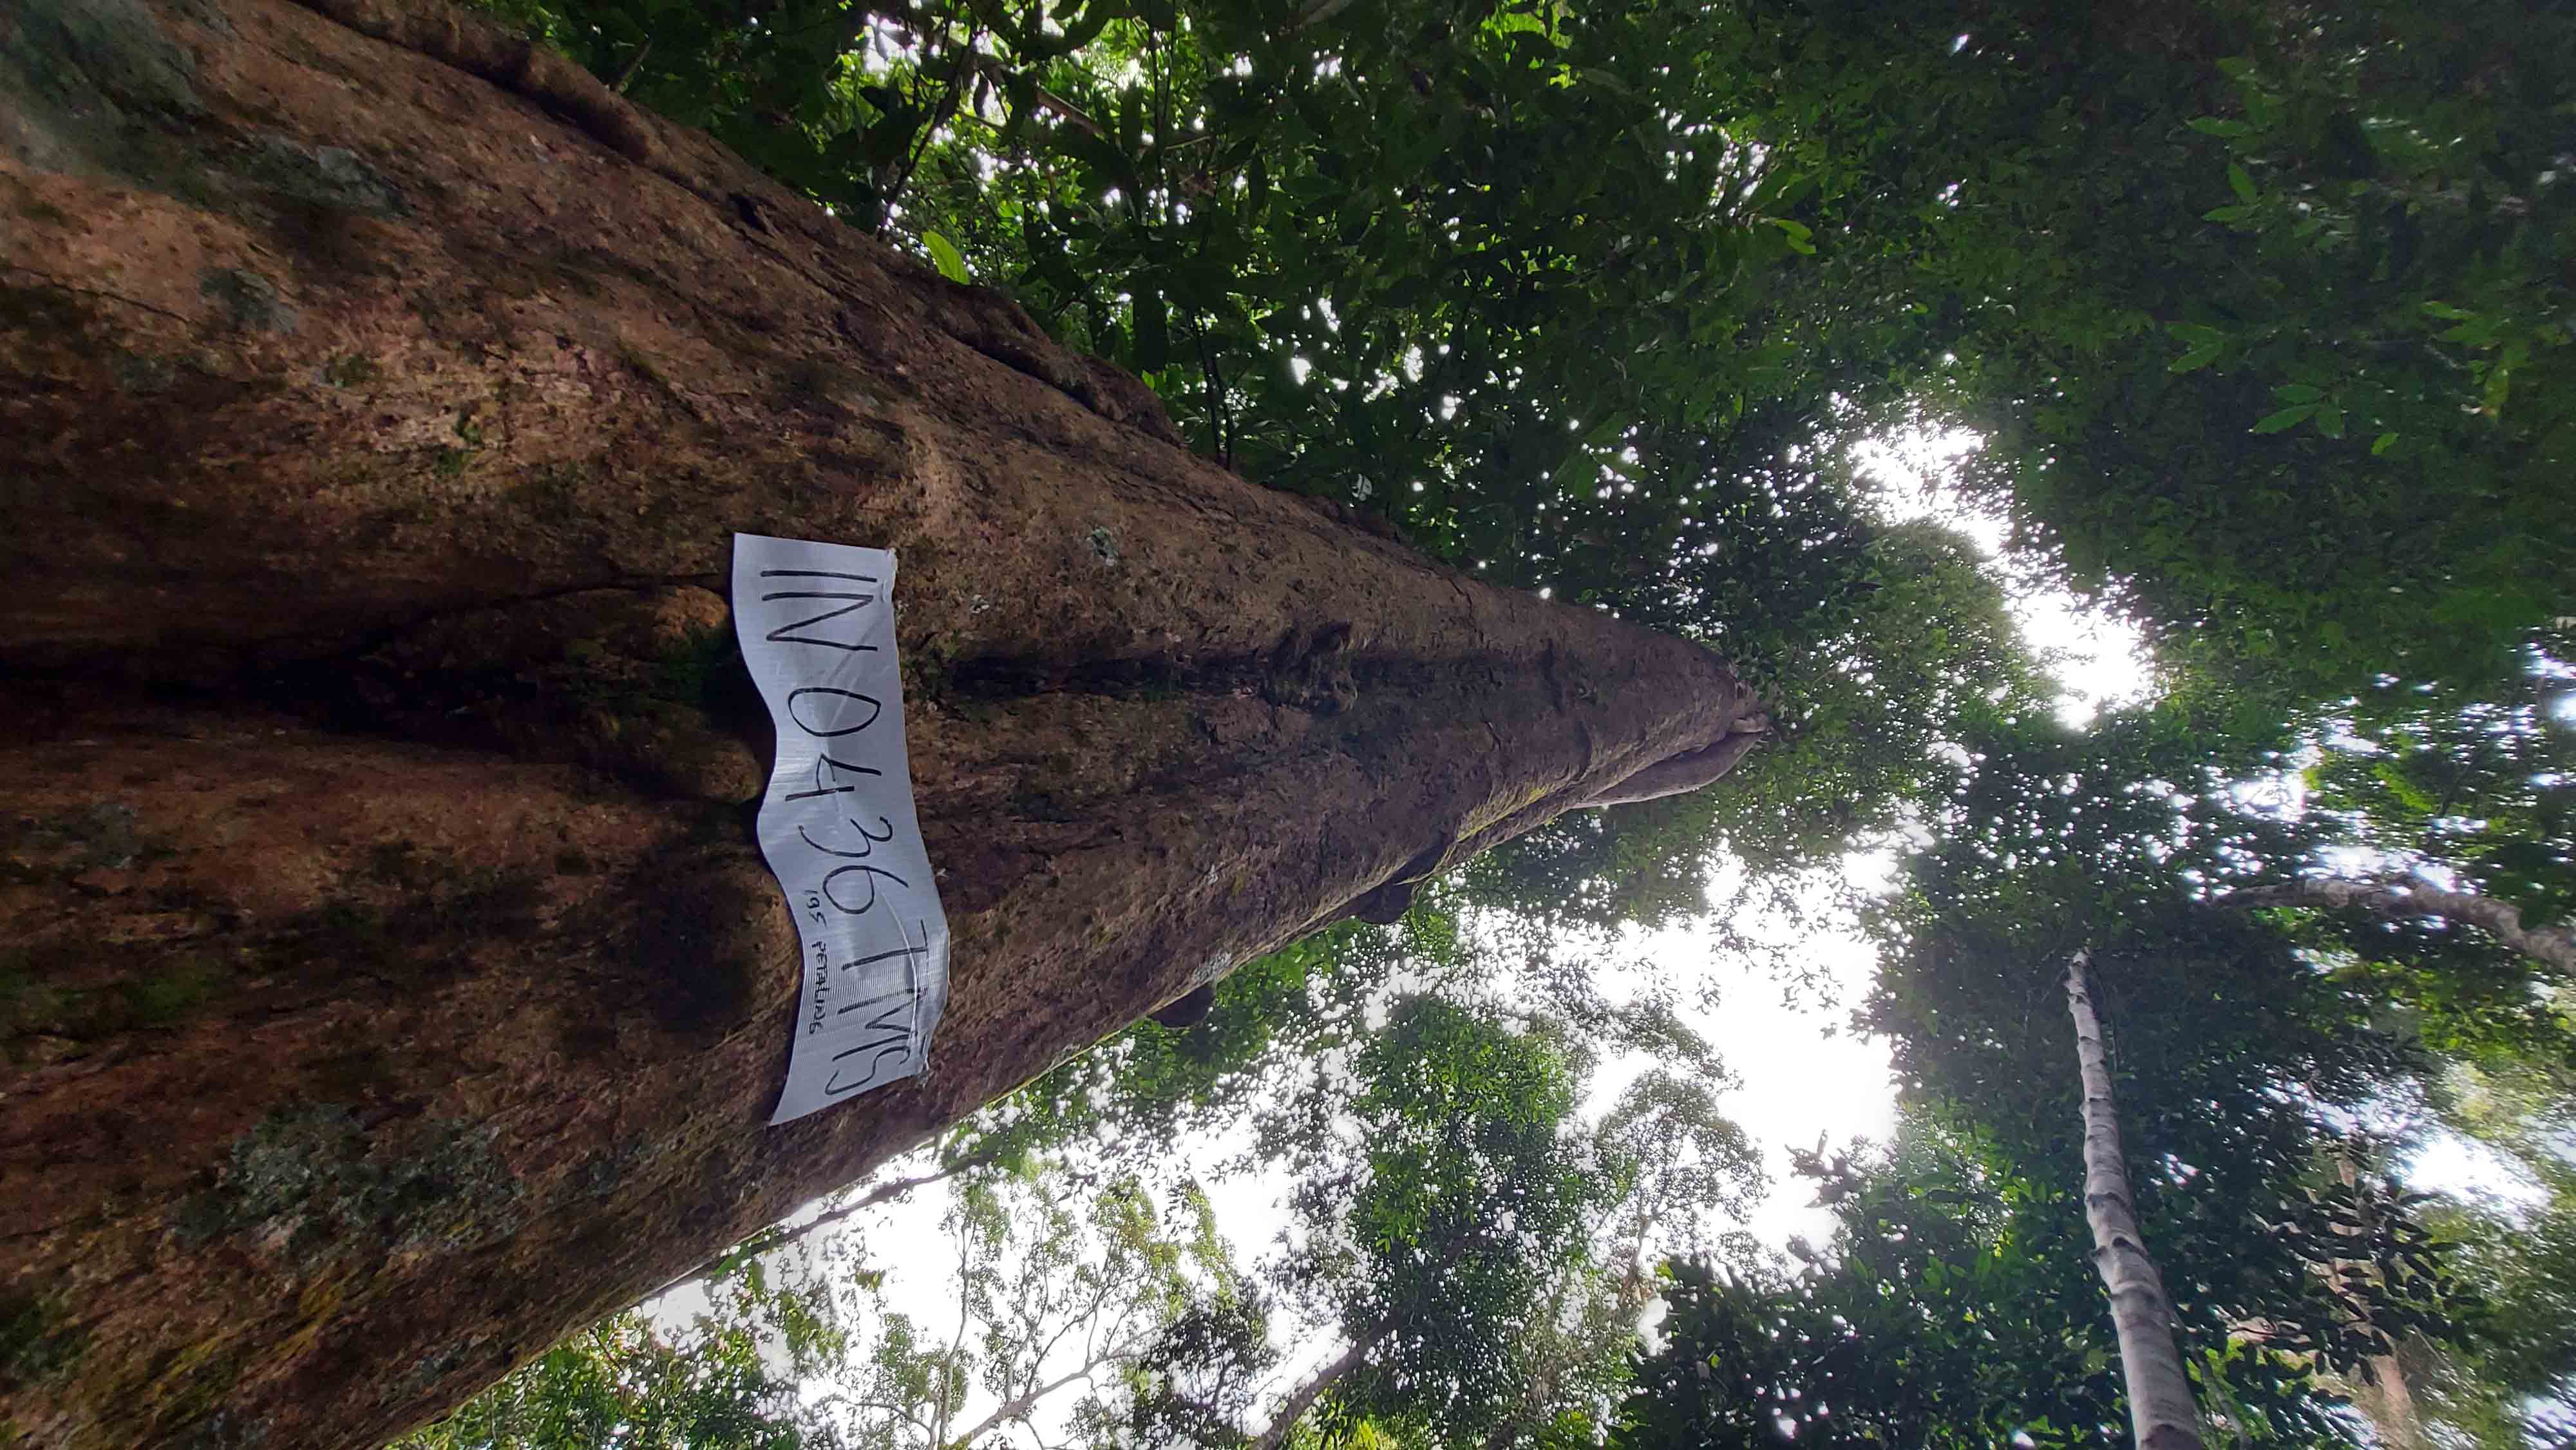 IN 0436 TMS
195 PETALING